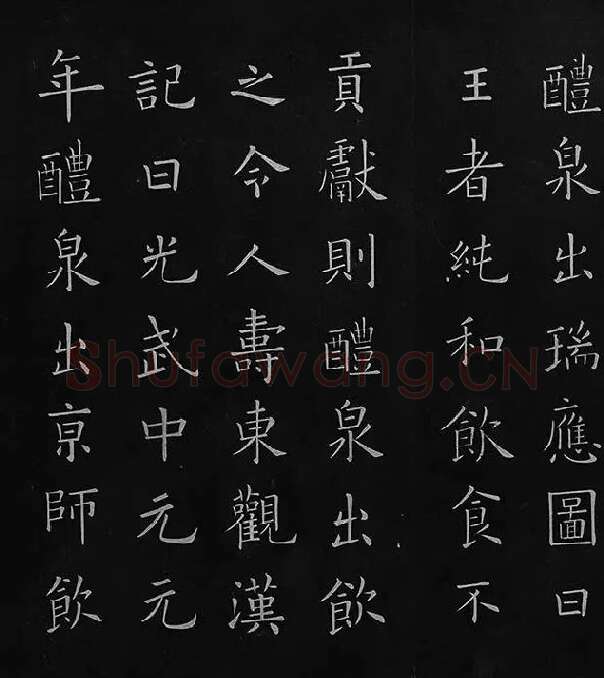 醴泉出瑞應圖曰
王者純和飲食不
貢獻則醴泉出飲
之令人壽東觀漢
記曰光武中元元
年醴泉出京師飲
Shufawang.CN